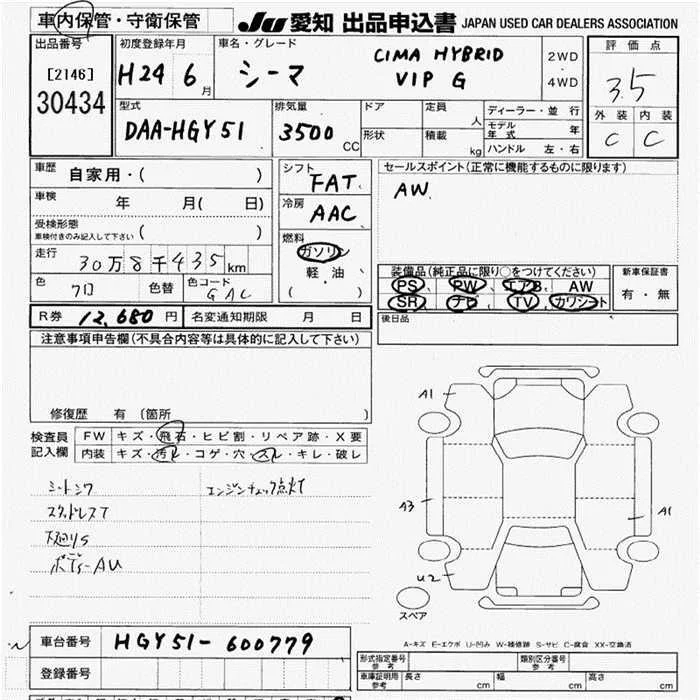 車内保管・守衛保管 JU 愛知 出品申込書 JAPAN USED CAR DEALERS ASSOCIATION
出品番号 初度登録年月 車名・グレード 評価点
[2146] H24 6月 シーマ CIMA HYBRID 2WD
30434 VIP G 4WD 3.5
型式 排気量 ドア 定員 人 ディーラー・並行 外装 内装
DAA-HGY51 3500CC 形状 積載 kg モデル年式 年 C C
ハンドル 左・右
車歴 自家用・( ) シフト FAT. セールスポイント(正常に機能するものに限ります)
車検 年 月( 日) 冷房 AAC AW.
受検形態 車検付きのみ記入して下さい ( ) 燃料
走行 30万8千435km ガソリン
色 色替 色コード GAC 軽・油
( )
装備品(純正品に限り○をつけてください) 新車保証書
PS、PW、エアB、AW 有・無
SR、ナビ、TV、カワシート
R券 12,680円 名変通知期限 月 日 後日品
注意事項申告欄(不具合内容等は具体的に記入して下さい)
修復歴 有 (箇所 )
検査員記入欄 FW キズ・飛石・ヒビ割・リペア跡・X要
内装 キズ・汚レ・コゲ・穴・スレ・キレ・破レ
シートシワ エンジンチェック点灯
スタッドレスT
下廻りS
ボデーAU
A1
A3
A1
U2
スペア
A-キズ E-エクボ U-凹み W-補修跡 S-サビ C-腐食 XX-交換済
車台番号 HGY51-600779
登録番号
形式指定番号 参考 類別区分番号 参考
車庫証明用 参考 長さ cm 幅 cm 高さ cm